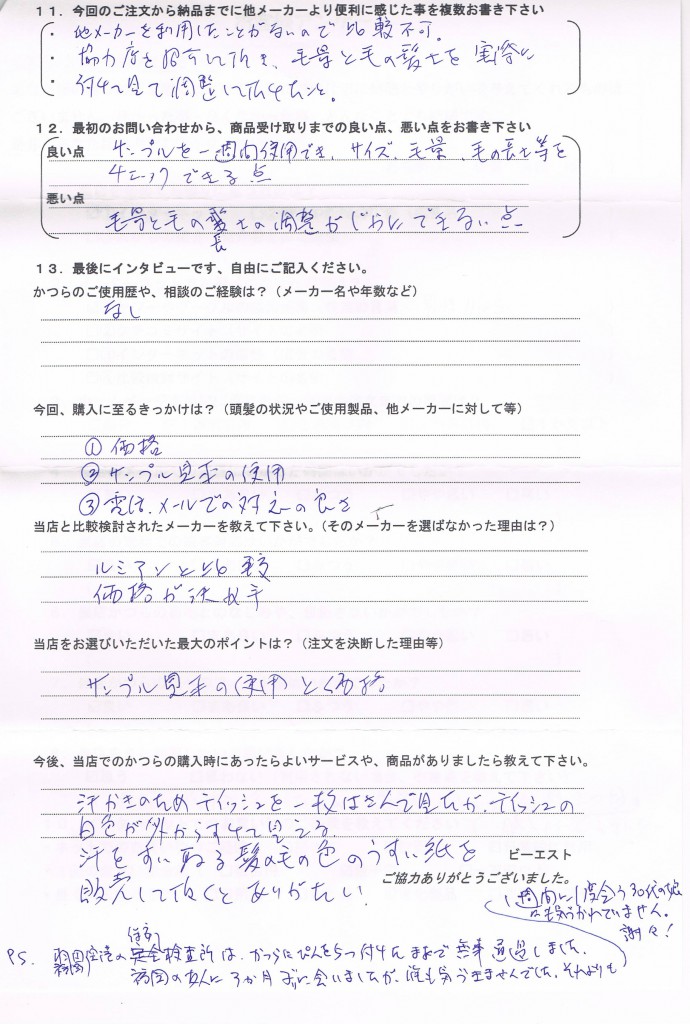 11．今回のご注文から納品までに他メーカーより便利に感じた事を複数お書き下さい
・他メーカーを利用したことがないので比較不可。
・協力店を紹介して頂き、毛量と毛の長さを実際に
・付けて見て調整して頂けたこと。
12．最初のお問い合わせから、商品受け取りまでの良い点、悪い点をお書き下さい
良い点 サンプルを一週間使用でき、サイズ、毛量、毛の長さ等を
チェックできる点
悪い点
毛量と毛の長さの調整がじかにできない点
13．最後にインタビューです、自由にご記入ください。
かつらのご使用歴や、相談のご経験は？（メーカー名や年数など）
なし
今回、購入に至るきっかけは？（頭髪の状況やご使用製品、他メーカーに対して等）
①価格
②サンプル見本の使用
③電話、メールでの対応の良さ
当店と比較検討されたメーカーを教えて下さい。（そのメーカーを選ばなかった理由は？）
ルミアンと比較
価格が決め手
当店をお選びいただいた最大のポイントは？（注文を決断した理由等）
サンプル見本の使用と価格
今後、当店でのかつらの購入時にあったらよいサービスや、商品がありましたら教えて下さい。
汗かきのためティッシュを一枚はさんで見たが、ティッシュの
白色が外からすけて見える
汗をすい取る髪の毛の色のうすい紙を
販売して頂くとありがたい。
ビーエスト
ご協力ありがとうございました。
P.S. 羽田空港の検査所は、かつらにぴんを5つ付けたままで無事通過しました。
の友人に3か月ぶりに会いましたが、誰も気づきませんでした。それよりも
1週間に1度会う30代の娘
にも気づかれていません。
謝々！